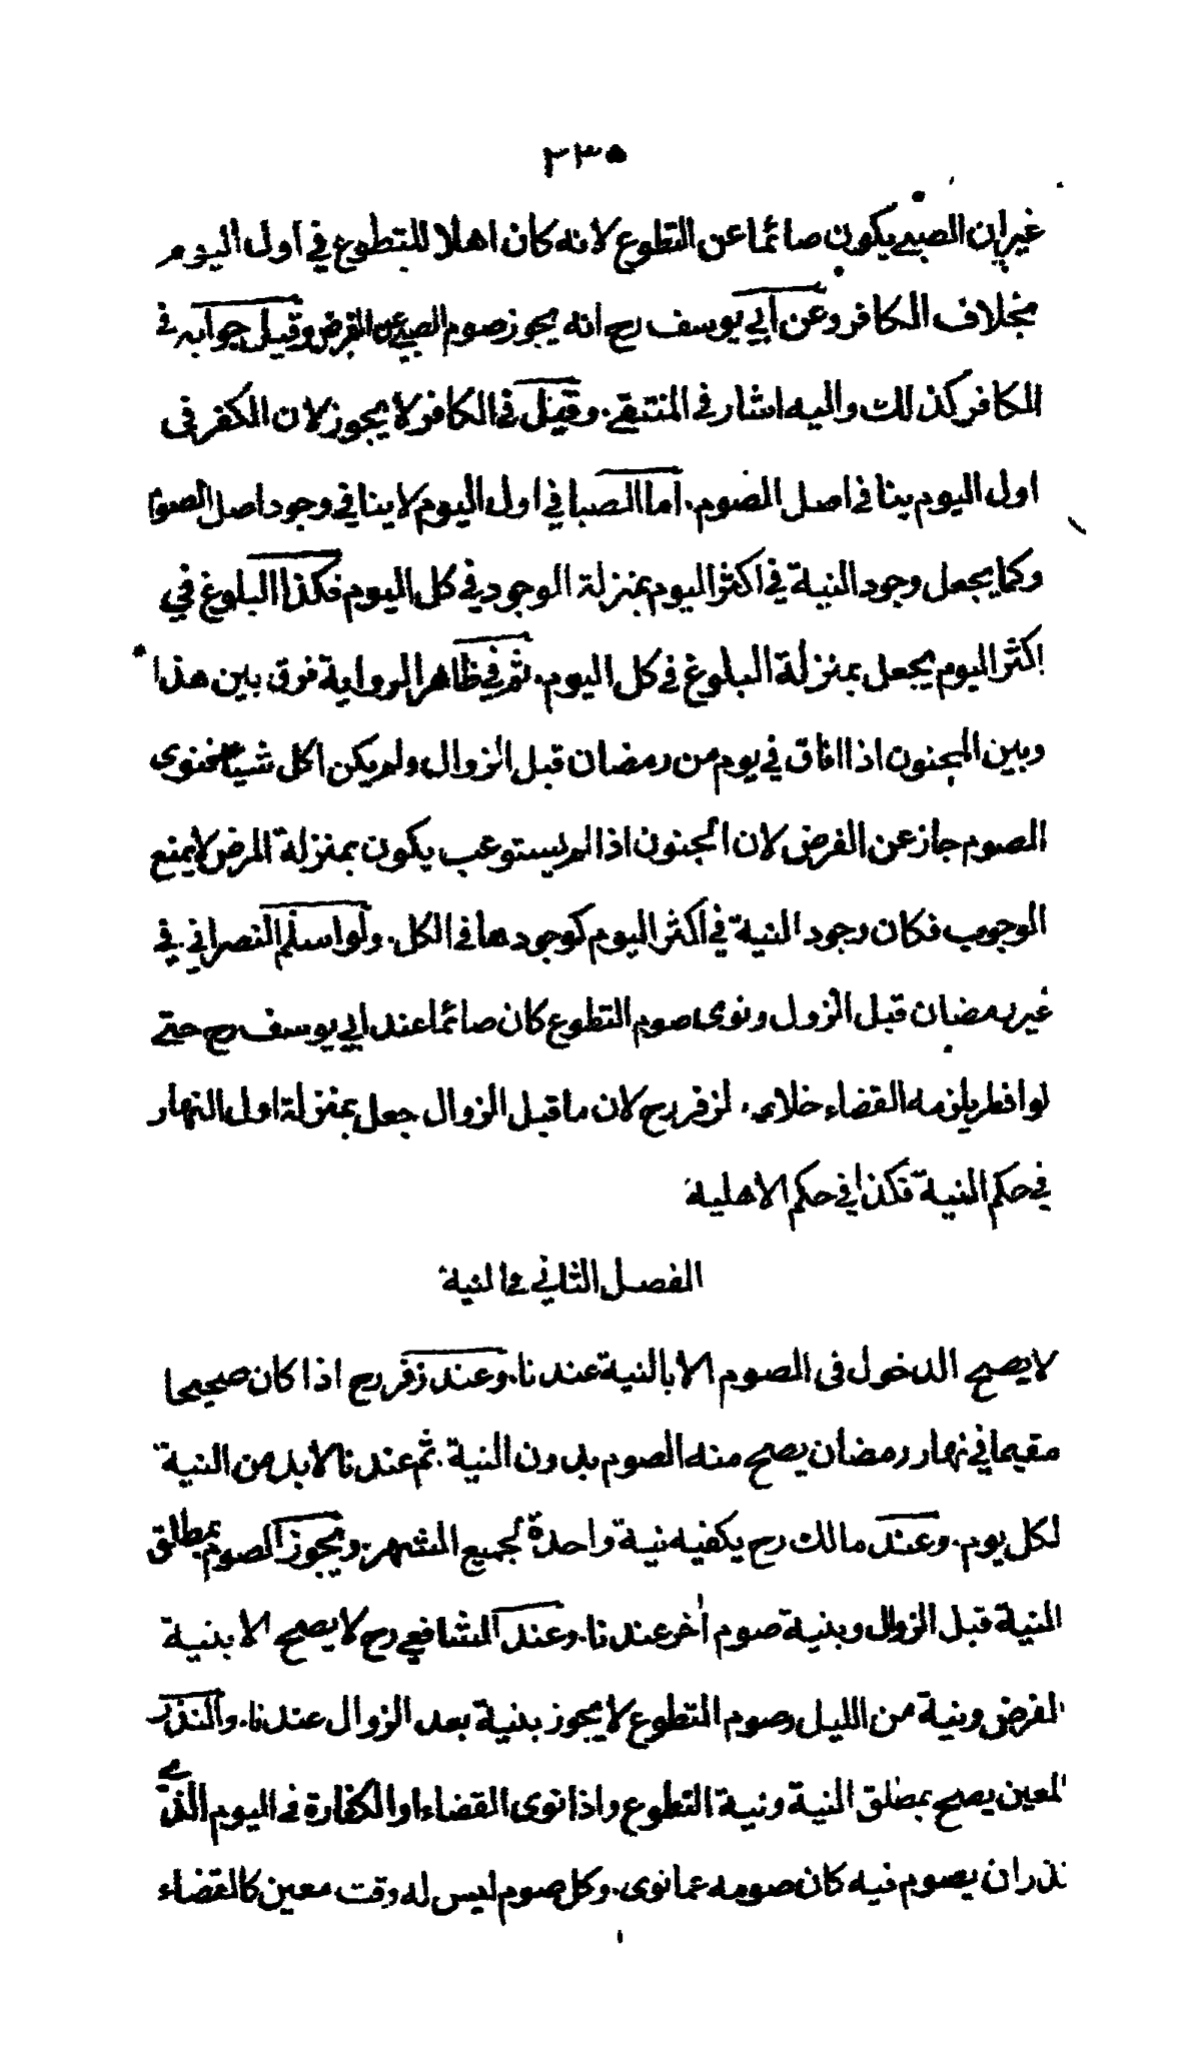 ٢٣٥
غير ان الصبي يكون صائما عن التطوع لانه كان اهلا للتطوع في اول اليوم
بخلاف الكافر وعن ابي يوسف رح انه يجوز صوم الصبي عن الفرض وقيل جوابه في
الكافر كذلك واليه اشار في المنتقى. وقيل في الكافر لا يجوز لان الكفر في
اول اليوم ينافي اصل الصوم. اما الصبا في اول اليوم لا ينافي وجود اصل الصوم
وكما يجعل وجود النية في اكثر اليوم بمنزلة الوجود في كل اليوم فكذا البلوغ في
اكثر اليوم يجعل بمنزلة البلوغ في كل اليوم. ثم في ظاهر الرواية فرق بين هذا
وبين المجنون اذا افاق في يوم من رمضان قبل الزوال ولم يكن اكل شيئا فنوى
الصوم جاز عن الفرض لان الجنون اذا لم يستوعب يكون بمنزلة المرض لا يمنع
الوجوب فكان وجود النية في اكثر اليوم كوجودها في الكل. ولو اسلم النصراني في
غير رمضان قبل الزول ونوى صوم التطوع كان صائما عند ابي يوسف رح حتى
لو افطر يلزمه القضاء خلافا. لزفر رح لان ما قبل الزوال جعل بمنزلة اول النهار
في حكم النية فكذا في حكم الاهلية
الفصل الثاني في النية
لا يصح الدخول فى الصوم الا بالنية عندنا. وعند زفر رح اذا كان صحيحا
مقيما في نهار رمضان يصح منه الصوم بدون النية. ثم عندنا لا بد من النية
لكل يوم. وعند مالك رح يكفيه نية واحدة لجميع الشهر. ويجوز الصوم بمطلق
النية قبل الزوال وبنية صوم أخر عندنا. وعند الشافعي رح لا يصح الا بنية
الفرض ونية من الليل وصوم التطوع لا يجوز بنية بعد الزوال عندنا. والنذر
المعين يصح بمطلق النية ونية التطوع واذا نوى القضاء او الكفارة في اليوم الذي
نذر ان يصوم فيه كان صومه عما نوى. وكل صوم ليس له وقت معين كالقضاء